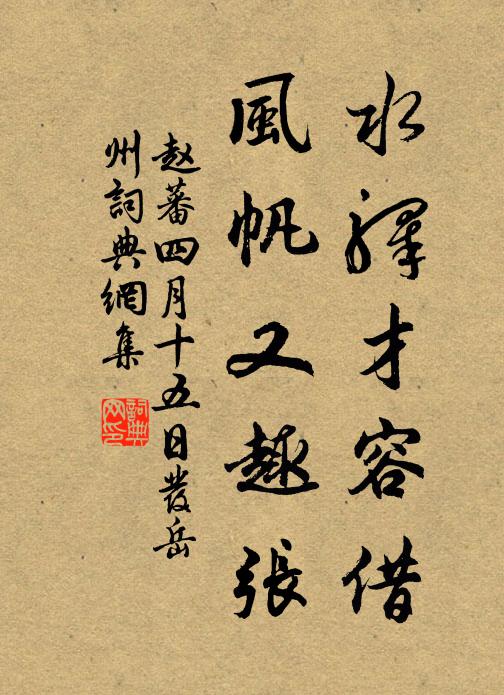 水驛才容借
風帆又趣張
赵蕃四月十五日發岳
州詞典網集
詞典
网印